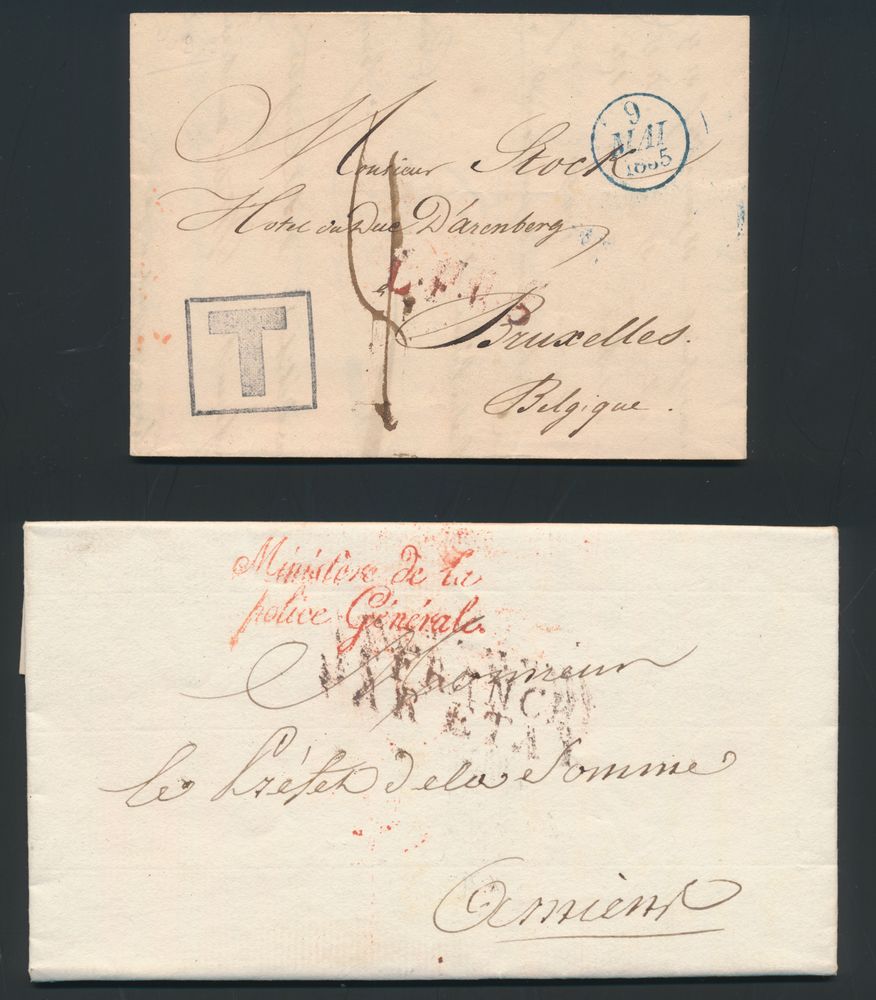 9
MAI
1835
Monsieur Stock
Hotel du Duc D'arenberg
à
L.F.R.3
Bruxelles.
Belgique.
T
Ministère de la
police Générale.
Monsieur
le Préfet de la Somme
Amiens